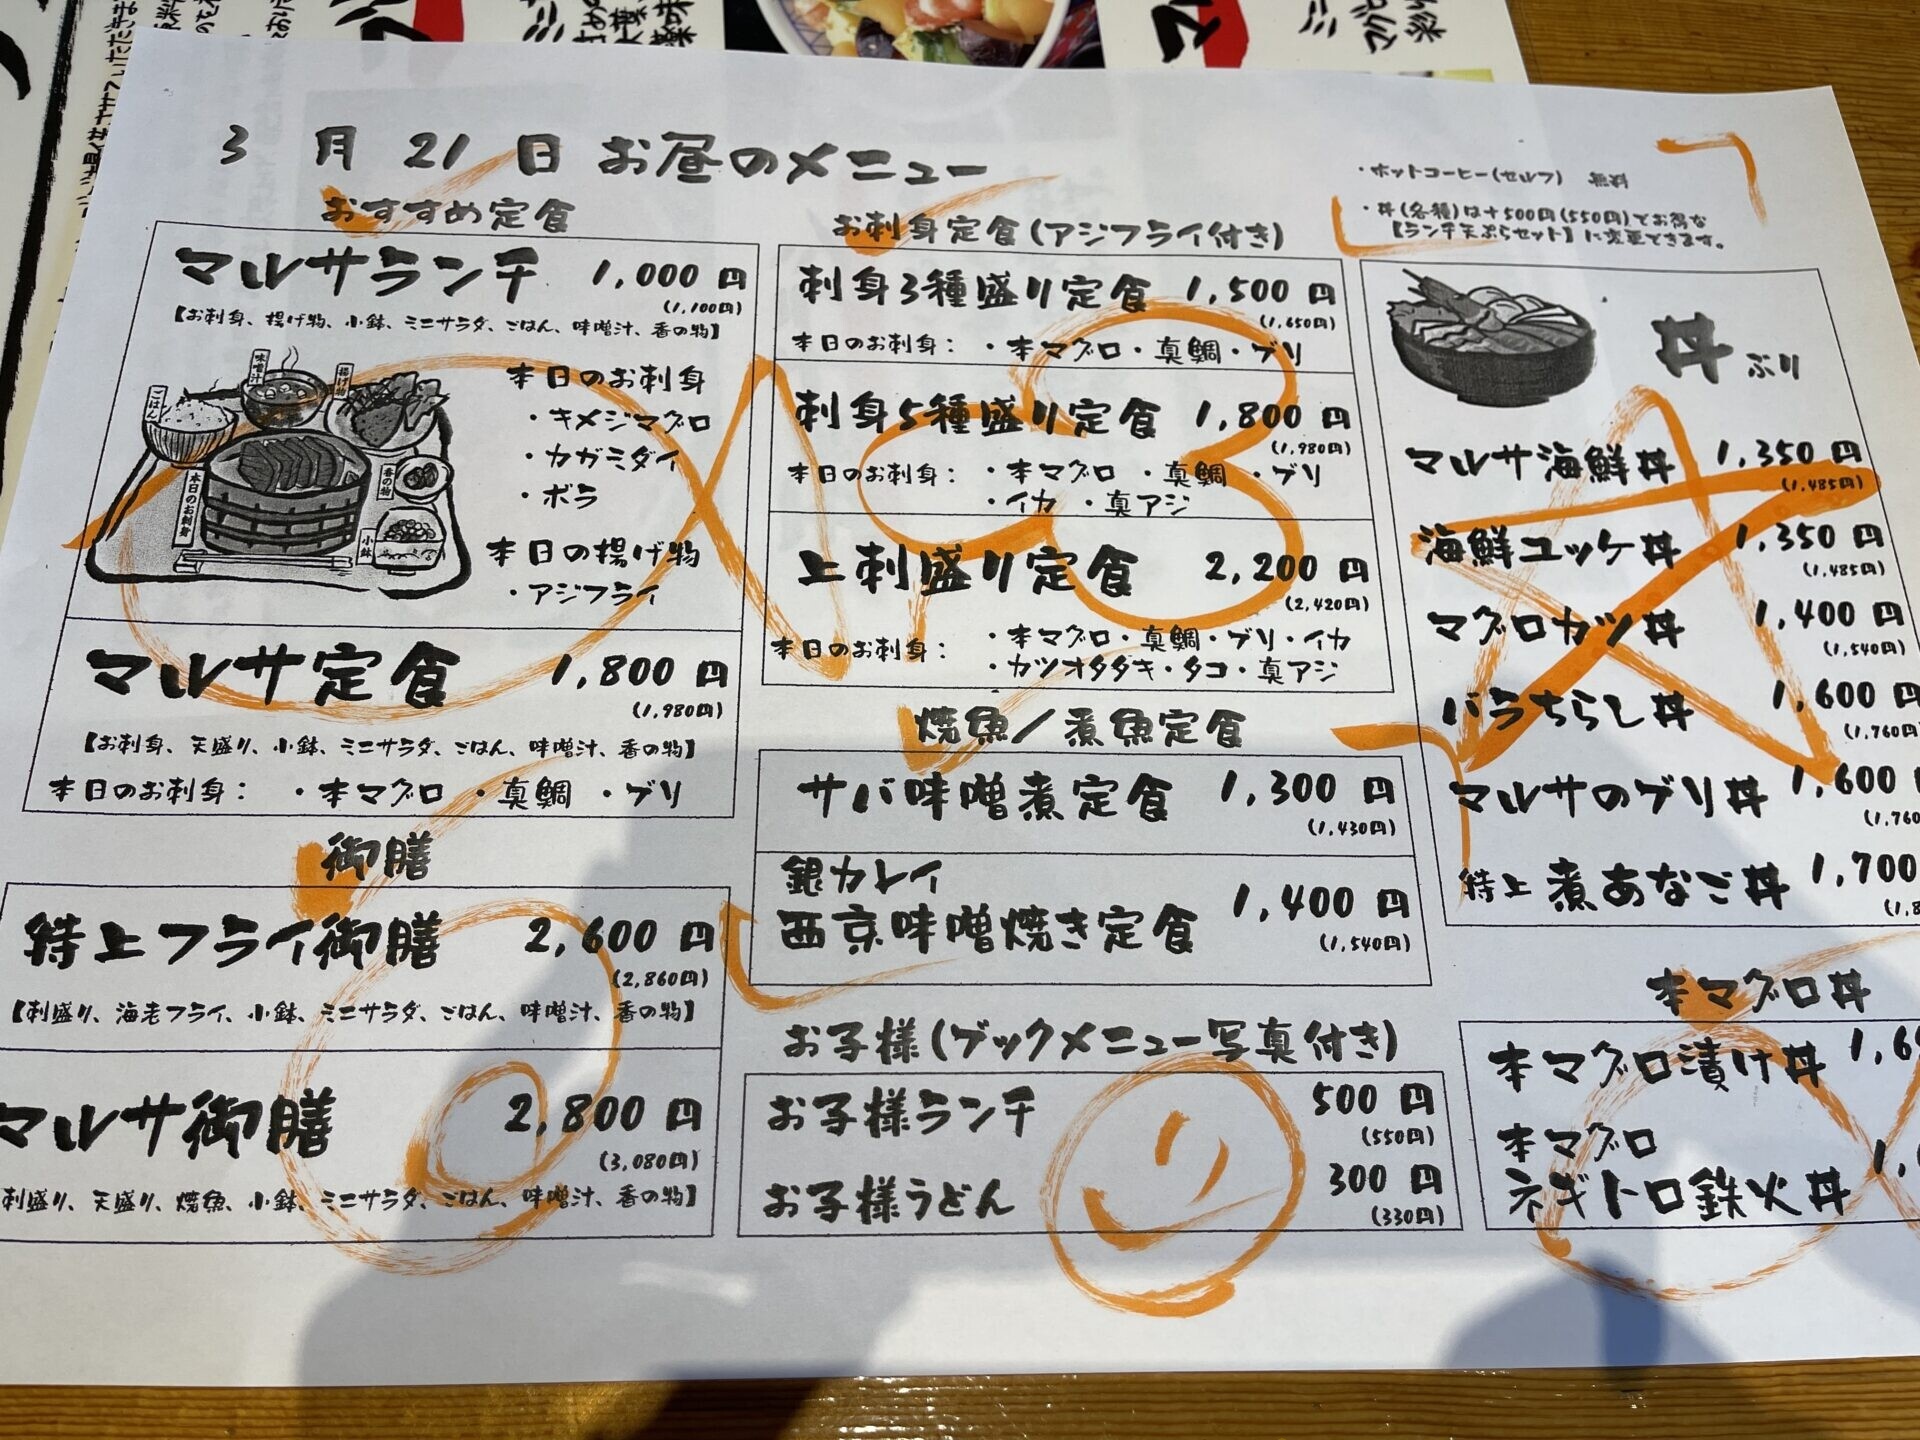 3月21日 お昼のメニュー
おすすめ定食
マルサランチ 1,000円
(1,100円)
【お刺身、揚げ物、小鉢、ミニサラダ、ごはん、味噌汁、香の物】
味噌汁
揚げ物
ごはん
香の物
本日のお刺身
小鉢
本日のお刺身
・キメジマグロ
・カガミダイ
・ボラ
本日の揚げ物
・アジフライ
マルサ定食 1,800円
(1,980円)
【お刺身、天盛り、小鉢、ミニサラダ、ごはん、味噌汁、香の物】
本日のお刺身： ・本マグロ ・真鯛 ・ブリ
御膳
特上フライ御膳 2,600円
(2,860円)
【刺盛り、海老フライ、小鉢、ミニサラダ、ごはん、味噌汁、香の物】
マルサ御膳 2,800円
(3,080円)
刺盛り、天盛り、焼魚、小鉢、ミニサラダ、ごはん、味噌汁、香の物】
お刺身定食(アジフライ付き)
刺身3種盛り定食 1,500円
(1,650円)
本日のお刺身： ・本マグロ・真鯛・ブリ
刺身5種盛り定食 1,800円
(1,980円)
本日のお刺身： ・本マグロ ・真鯛 ・ブリ
・イカ ・真アジ
上刺盛り定食 2,200円
(2,420円)
本日のお刺身： ・本マグロ・真鯛・ブリ・イカ
・カツオタタキ・タコ・真アジ
焼魚/煮魚定食
サバ味噌煮定食 1,300円
(1,430円)
銀カレイ
西京味噌焼き定食 1,400円
(1,540円)
お子様(ブックメニュー写真付き)
お子様ランチ 500円
(550円)
お子様うどん 300円
(330円)
・ホットコーヒー(セルフ) 無料
・丼(各種)は+500円(550円)でお得な
【ランチ天ぷらセット】に変更できます。
丼ぶり
マルサ海鮮丼 1,350円
(1,485円)
海鮮ユッケ丼 1,350円
(1,485円)
マグロカツ丼 1,400円
(1,540円)
バラちらし丼 1,600円
(1,760円)
マルサのブリ丼 1,600
(1,760
特上 煮あなご丼 1,700
本マグロ丼
本マグロ漬け丼
本マグロ
ネギトロ鉄火丼